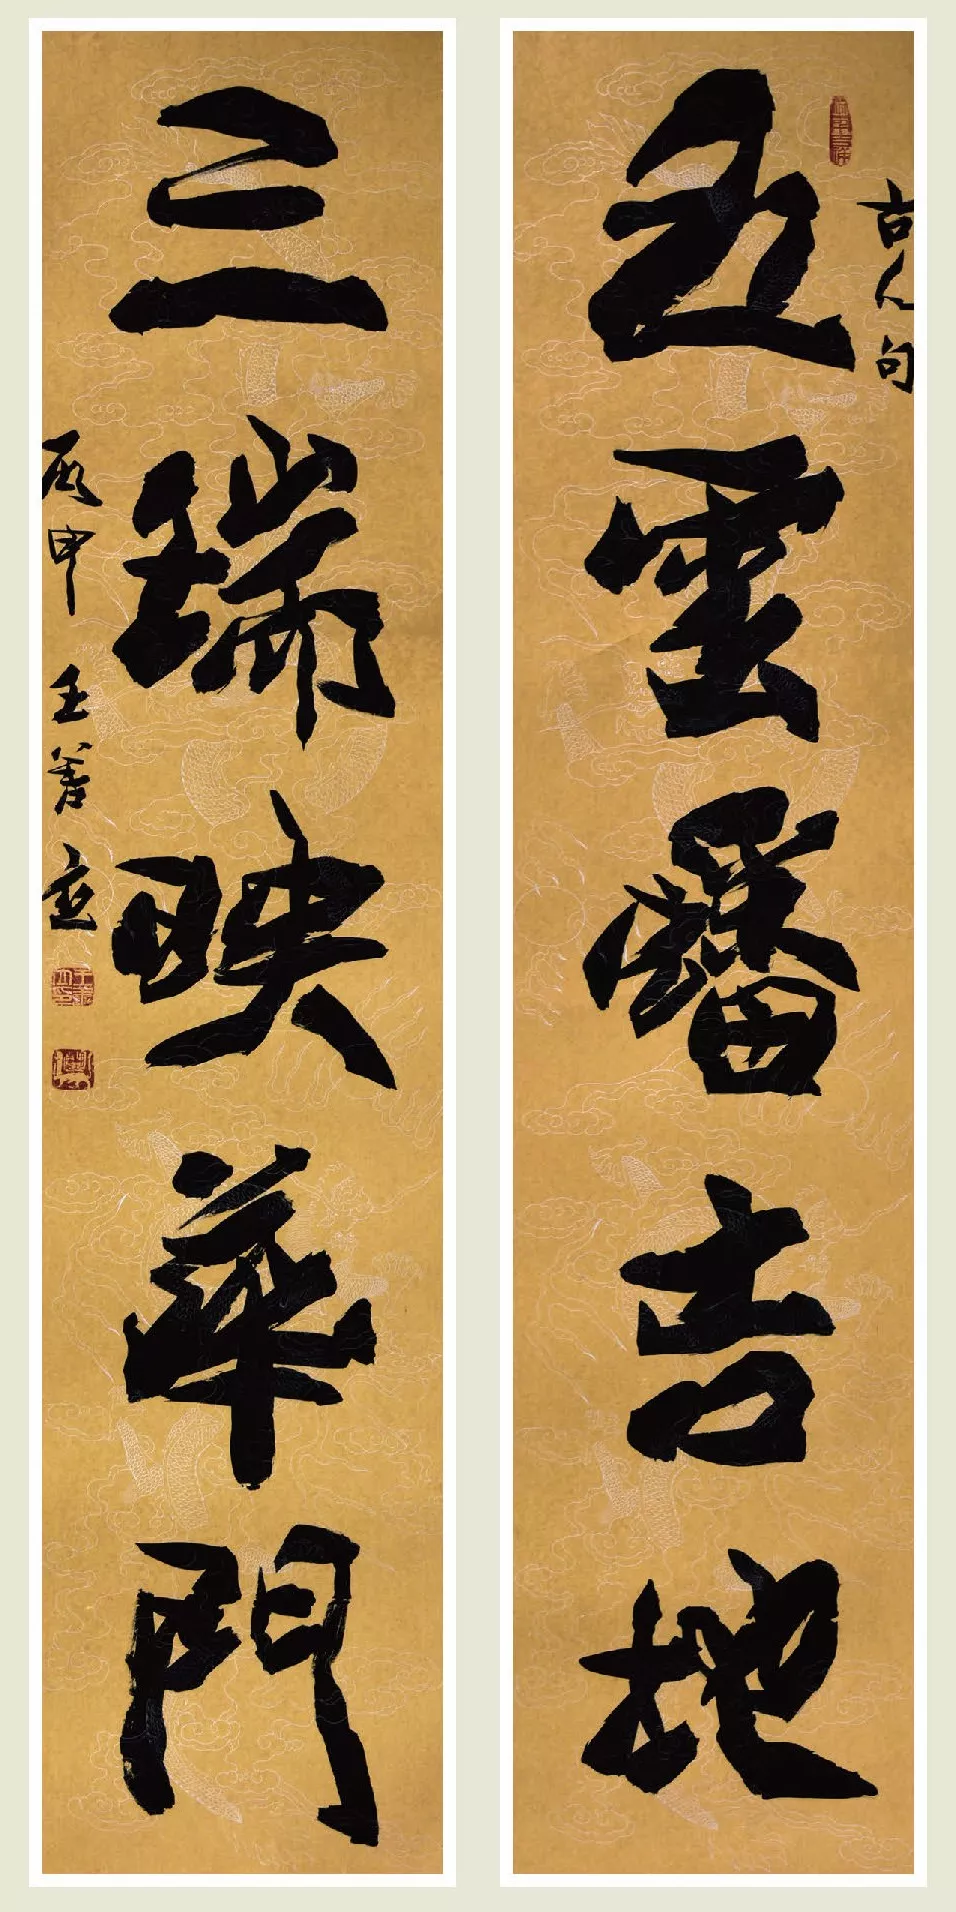 五雲蟠吉地
古人句
三瑞映華門
丙申王善應